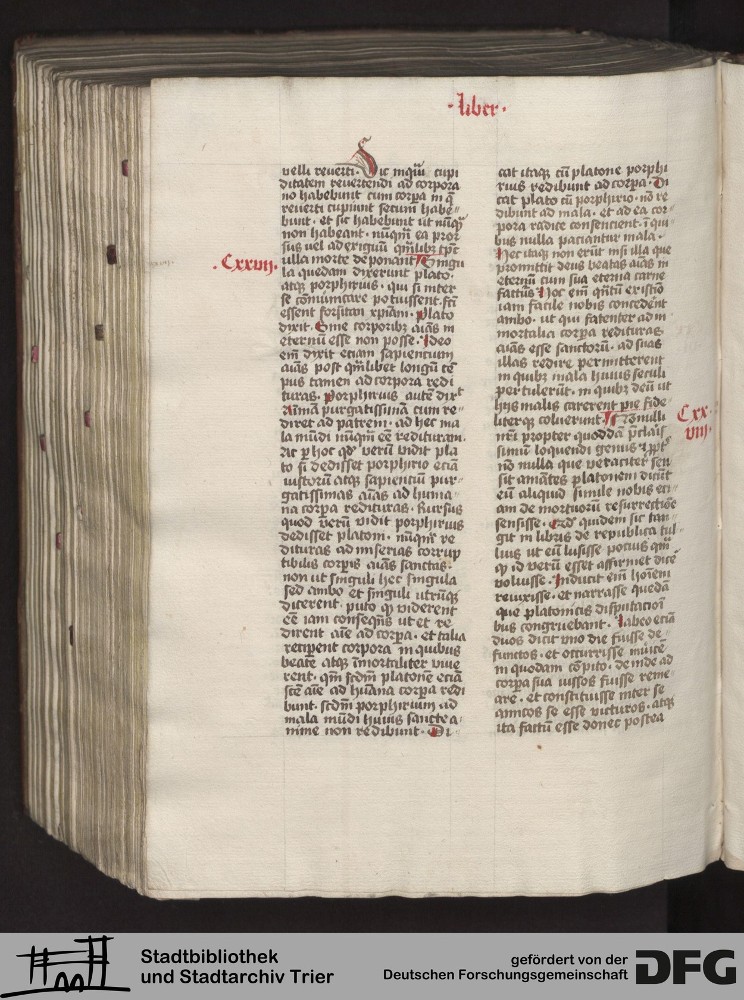 ·liber·
velli reverti· Sic inquiu cupi
ditatem revertendi ad corpora
no habebunt cum corpora in q̄
reverti cupiunt secum habe⸗
bunt· et sic habebunt ut nūq̄
non habeant· nūqm̄ ea pror
sus vel ad exiguū qm̄libʒ tp̄t
illa morte deponant Singu
·Cxxvij·
la quedam dixerunt plato·
atqʒ porphirius· qui si inter
se cōmunicare potuissent· fc̄i
essent forsitan xp̄iani· plato
dixit· Sine corporibʒ aīas in
eternū esse non posse· Ideo
em̄ dixit eciam sapiencium
aīas post qm̄libet longū tē
pus tamen ad corpora redi
turas· porphirius autē dixt
Aīmā purgatissimā cum re⸗
dieret ad patrem· ad hec ma
la mūdi nūqm̄ eē redituram·
Ac p̱ hoc qd̄ verū vidit pla
to si dedisset porphirio eciā
iustorū atqʒ sapienciū pur
gatissimas aīas ad huma
na corpora redituras· Rursus
quod verū vidit porphirius
dedisset platoni· nūqm̄ re
dituras ad miserias corrup
tibilis corpis aīas sanctas·
non ut singuli hec singula
sed ambo et singuli utrūqʒ
dicerent· puto q̄ viderent
eē iam conseqn̄s ut et re⸗
dirent aīe ad corpa· et talia
reciperent corpora in quibus
beate atqʒ īmortaliter vive
rent· qm̄ scdm̄ platonē eciā
scē aīe ad hūana corpa redi
bunt· scdm̄ porphirium ad
mala mūdi huius sancte a⸗
nime non redibunt· Di⸗
cat itaqʒ cū platone porphi
rius redibunt ad corpa· Di
cat plato cū porphirio· nō re
dibunt ad mala· et ad ea cor⸗
pora radice consencient· ī qui⸗
bus nulla paciantur mala·
Hec itaqʒ non erūt nisi illa que
promittit deus beatas aīas in
eternū cum sua eterna carne
factūrʒ Hoc em̄ qn̄tū existio
iam facile nobis concedent
ambo· ut qui fatentēr ad in
mortalia corpa redituras
aīas esse sanctorū· ad suas
illas redire permitterent
in quibʒ mala huius seculi
pertulerūt· in quibʒ deū ut
hijs malis carerent pie fide⸗
literqʒ coluerunt Nōnulli
Cxx·
viij·
nr̄i propter quoddā p̄clariſ
simū loquendi genus ⁊ ppt̄
nō nulla que veraciter sen
sit amātes platonem dicūt
eū aliquid simile nobis eci⸗
am de mortuorū resurrectiōe
sensisse· Qd̄ quidem sic tan⸗
git in libris de republica tul⸗
lius ut eū lusisse pocius qm̄
q̄ id verū esset affirmet dicē
voluisse· Inducit em̄ hoīem
revixisse· et narrasse quedā
que platonicis disputacioī
bus congruebant· labeo eciā
duos dicit uno die fuisse de⸗
functos· et occurrisse īuicē
in quodam cōpito· deinde ad
corpora sua iussos fuisse reme⸗
are· et constituisse inter se
amicos se esse victuros· atqʒ
ita factū esse donec postea
Stadtbibliothek
und Stadtarchiv Trier
gefördert von der
Deutschen Forschungsgemeinschaft
DFG